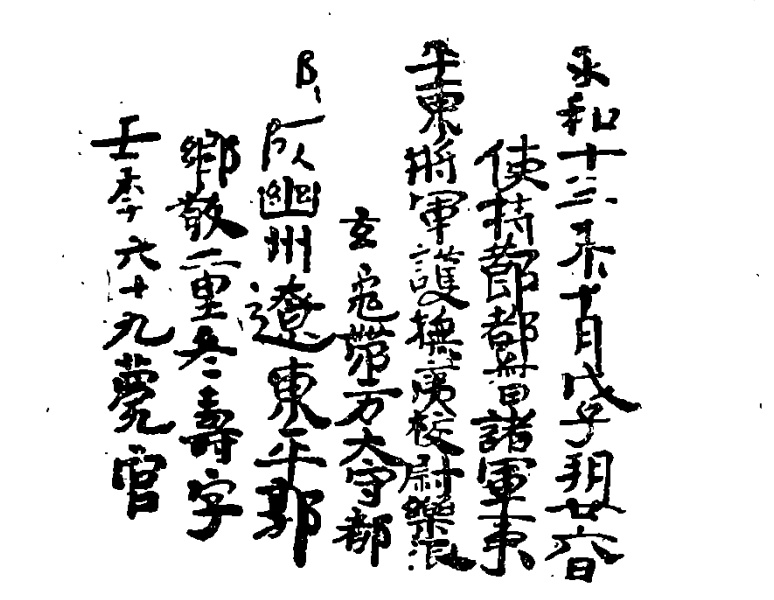 永和十三年十月戊子朔廿六日
使持節都督諸軍事
平東將軍護撫夷校尉樂浪
玄菟帶方太守都
幽州遼東平郭
鄉敬上里冬壽字
年六十九薨官